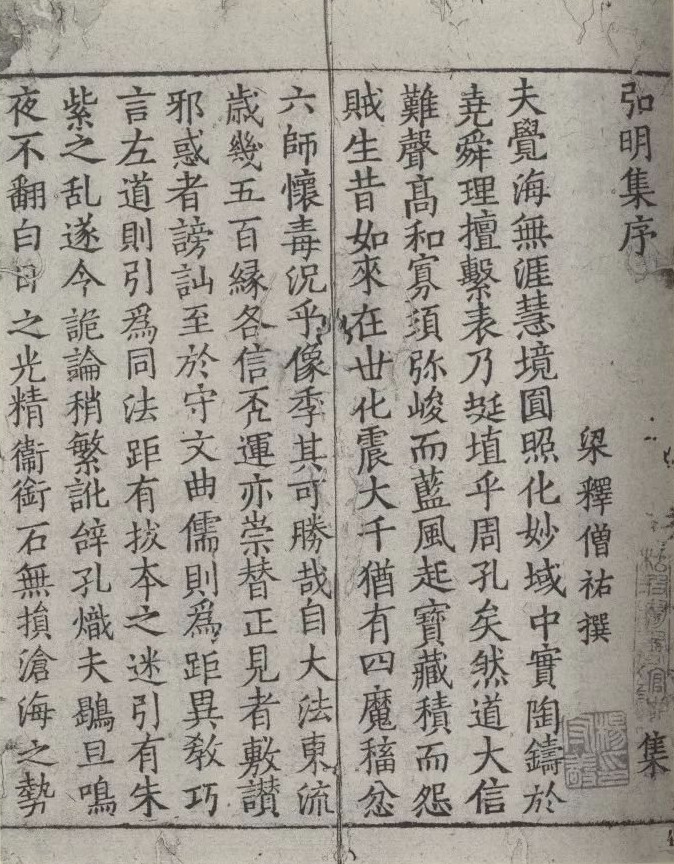 弘明集序
集
梁釋僧祐撰
夫覺海無涯慧境圓照化妙域中實陶鑄於
堯舜理擅繫表乃埏埴乎周孔矣然道大信
難聲高和寡須弥峻而藍風起寶藏積而怨
賊生昔如來在世化震大千猶有四魔稸忿
六師懷毒況乎像季其可勝哉自大法東流
歲幾五百縁各信否運亦崇替正見者敷讃
邪惑者謗訕至於守文曲儒則爲距異教巧
言左道則引爲同法距有拔本之迷引有朱
紫之乱遂令詭論稍繁訛辝孔熾夫鶡旦鳴
夜不翻白日之光精衞銜石無損滄海之勢